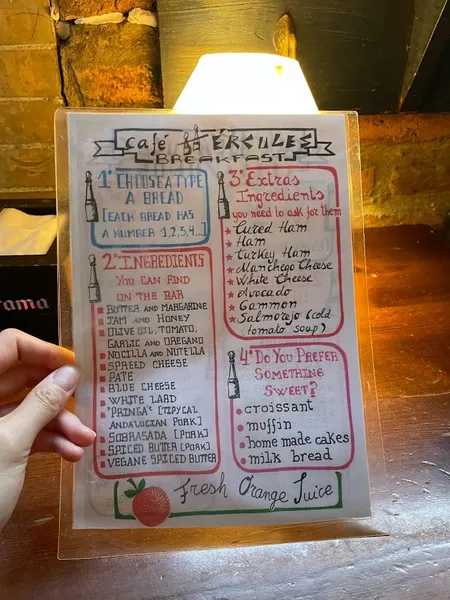 Café HÉRCULES
BREAKFAST
1º CHOOSE A TYPE
A BREAD
[EACH BREAD HAS
A NUMBER 1,2,3,4...]
2º INGREDIENTS
YOU CAN FIND
ON THE BAR
BUTTER AND MARGARINE
JAM AND HONEY
OLIVE OIL, TOMATO,
GARLIC AND OREGANO
NOCILLA AND NUTELLA
SPREED CHEESE
PATE
BLUE CHEESE
WHITE LARD
"PRINGA" [TIPYCAL
ANDALUCIAN PORK]
SOBRASADA [PORK]
SPICED BUTTER [PORK]
VEGANE SPICED BUTTER
3º Extras
Ingredients
you need to ask for them
Cured Ham
Ham
Turkey Ham
Manchego Cheese
White Cheese
Avocado
Gammon
Salmorejo (cold
tomato soup)
4º DO YOU PREFER
SOMETHING
SWEET?
croissant
muffin
home made cakes
milk bread
Fresh Orange Juice
rama